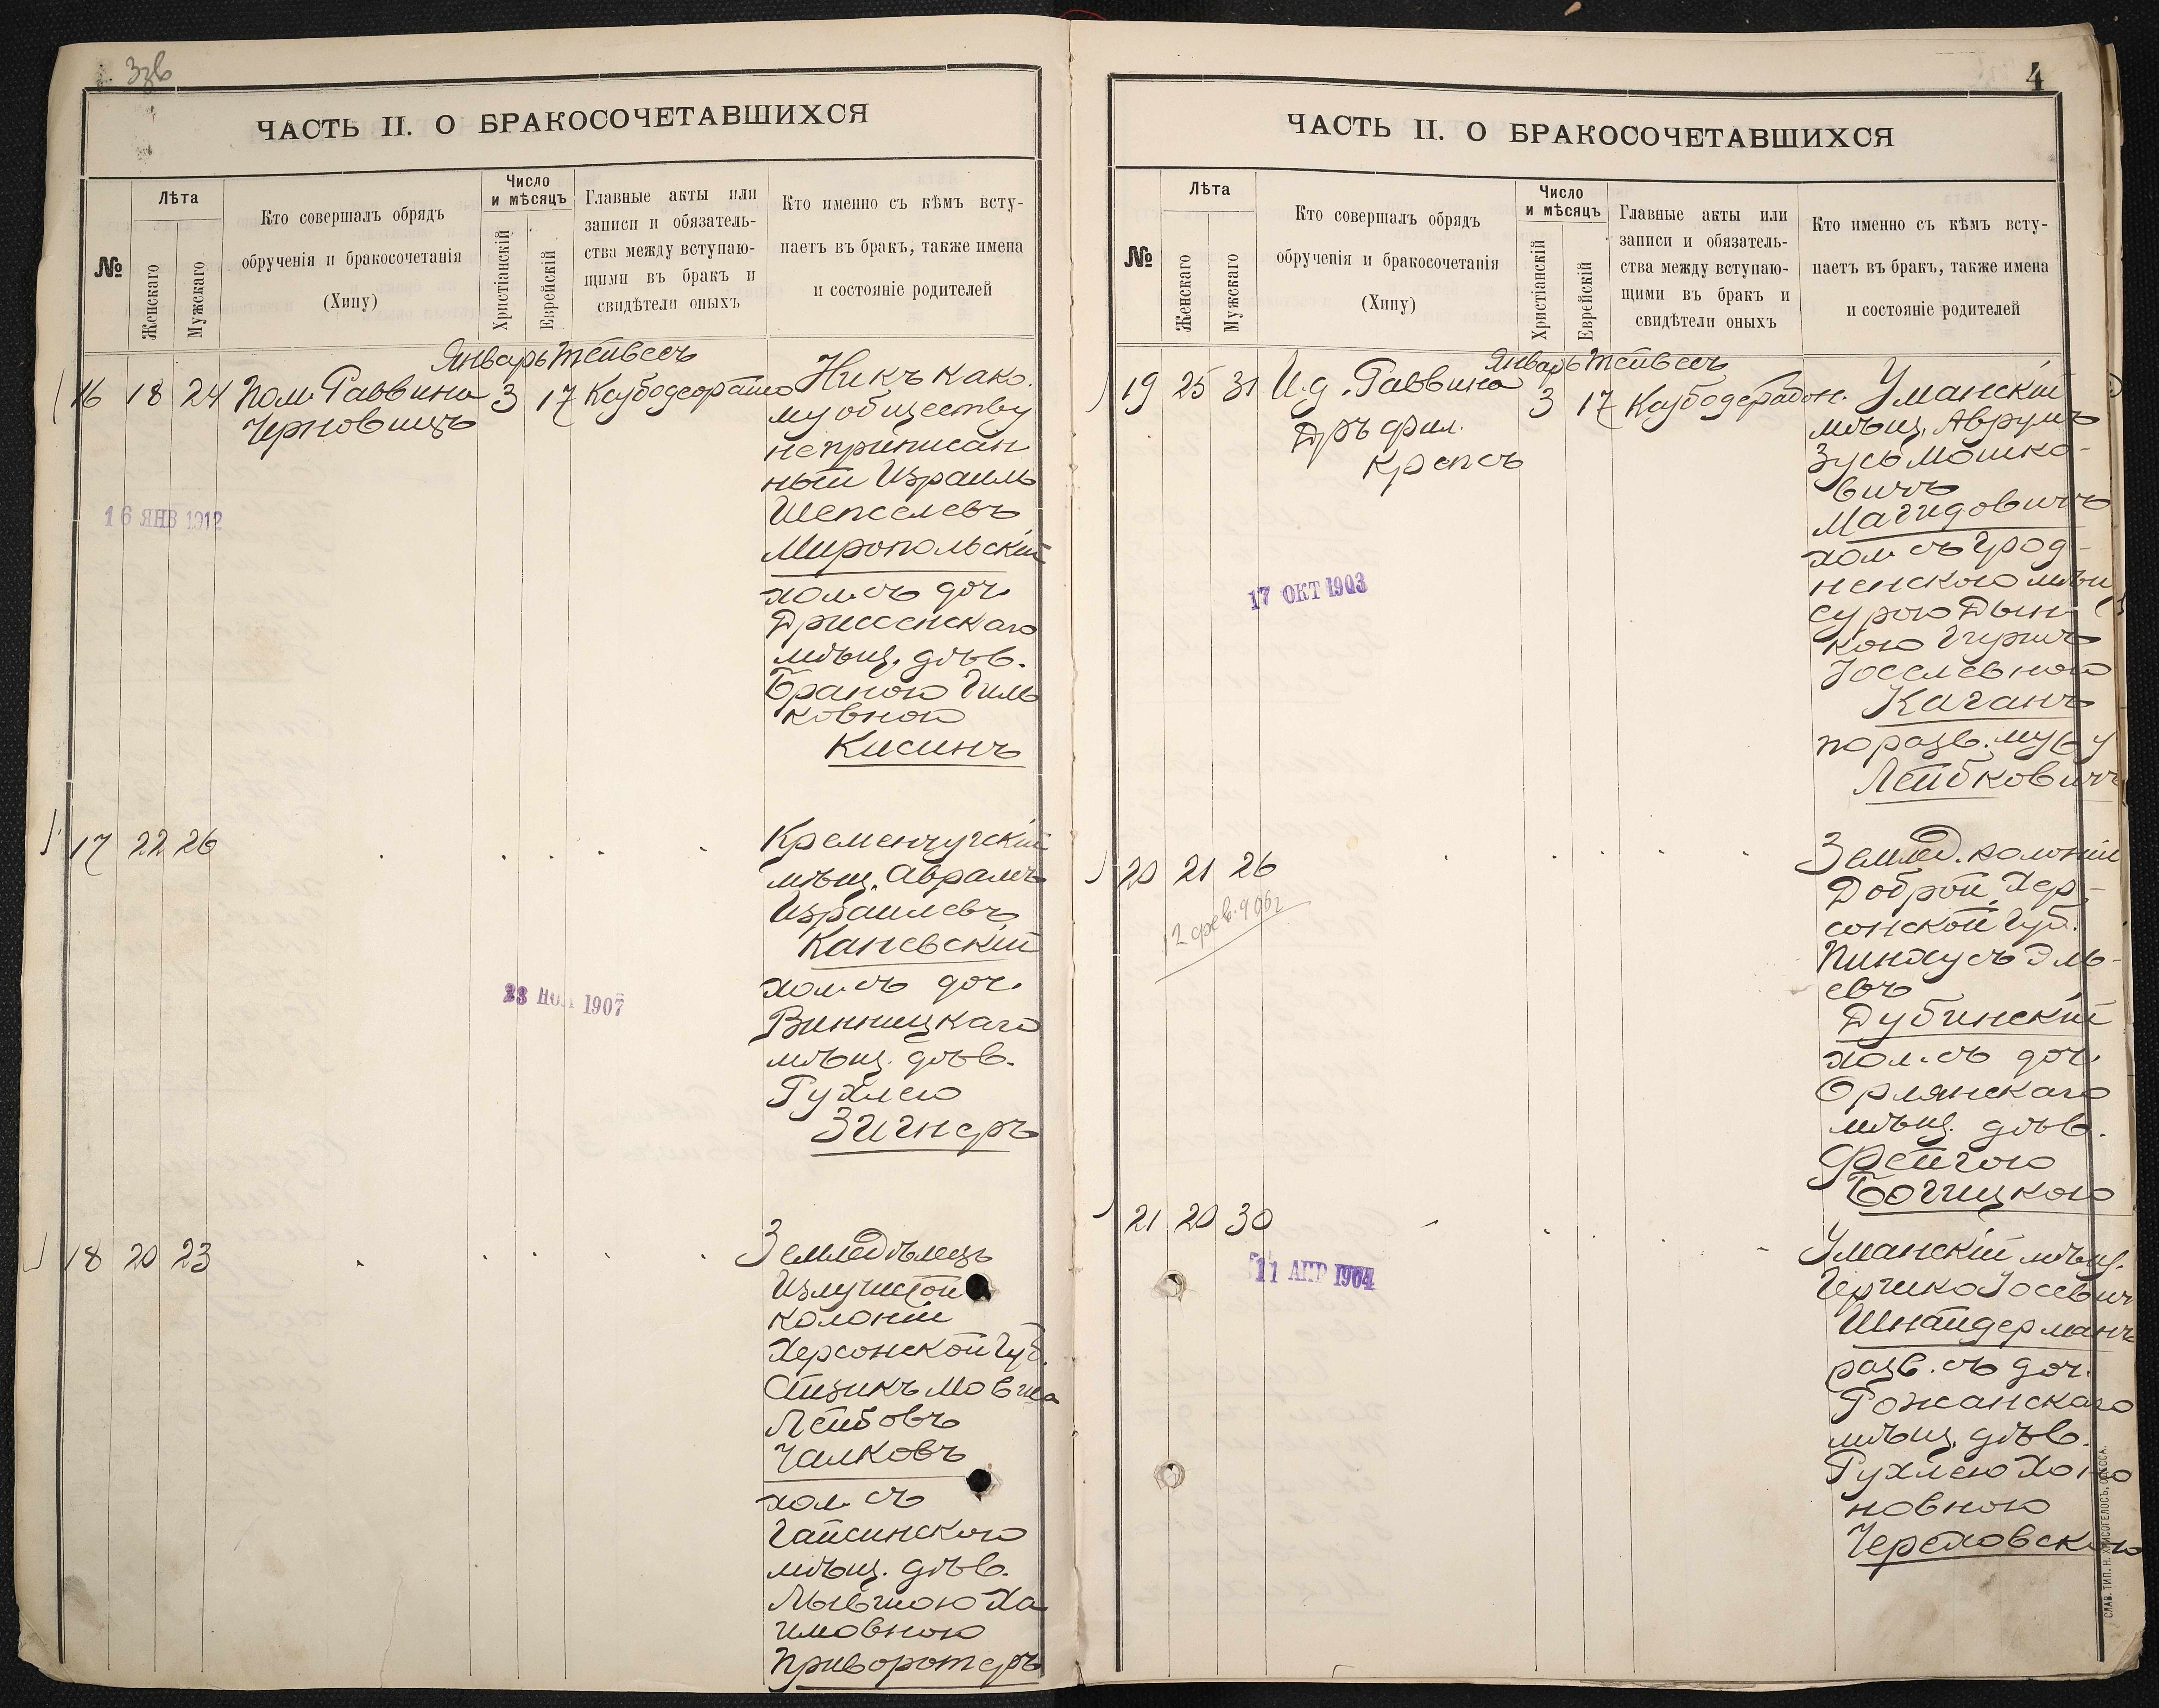 ЧАСТЬ II. О БРАКОСОЧЕТАВШИХСЯ
№
Лѣта
Женскаго
Мужскаго
Кто совершалъ обрядъ
обрученія и бракосочетанія
(Хипу)
Число
и мѣсяцъ
Христіанскій
Еврейскій
Главные акты или
записи и обязатель-
ства между вступаю-
щими въ бракъ и
свидѣтели оныхъ
Кто именно съ кѣмъ всту-
паетъ въ бракъ, также имена
и состояніе родителей
Январь Тейвесъ
16 18 24 Пом. Раввина 3 17
Черновицъ
Никъ како-
му обществу
неприписан
ный Израиль
Шепселевъ
Миропольскій
хол. съ доч.
Дриссенскаго
мѣщ. дѣв.
Браною Гиль
ковной
Кисинъ
16 ЯНВ 1912
17 22 26
Кременчугскій
мѣщ. Абрамъ
Израилевъ
Каневскій
хол. съ доч.
Винницкаго
мѣщ. дѣв.
Рухлею
Зигнеръ
1907
18 20 23
Земледѣлецъ
Излучистой
колоніи
Херсонской Губ.
Айзикъ Мовша
Лейбовъ
Чалковъ
хол. съ
Гайсинскою
мѣщ. дѣв.
Мывшою Ха
имовною
Приворотеръ
4
ЧАСТЬ II. О БРАКОСОЧЕТАВШИХСЯ
№
Лѣта
Женскаго
Мужскаго
Кто совершалъ обрядъ
обрученія и бракосочетанія
(Хипу)
Число
и мѣсяцъ
Христіанскій
Еврейскій
Главные акты или
записи и обязатель-
ства между вступаю-
щими въ бракъ и
свидѣтели оныхъ
Кто именно съ кѣмъ всту-
паетъ въ бракъ, также имена
и состояніе родителей
Январь Тейвесъ
19 25 31 И.д. Раввина 3 17
Дръ фил.
Крепсъ
Уманскій
мѣщ. Аврумъ
Зусь Мошко-
вичъ
Магидовичъ
хол. съ Грод-
ненскою мѣщ
Сурою Дын-
кою Гиршъ
Іоселевной
Каганъ
по разв. мужу
Лейбковичъ
17 ОКТ 1903
20 21 26
12 фев. 906 г
Землед. колоніи
Доброй, Хер-
сонской Губ.
Пинхусъ Эль-
евъ
Дубинскій
хол. съ доч.
Орлянскаго
мѣщ. дѣв.
Фейгою
Богицкою
21 20 30
11 АПР 1904
Уманскій мѣщ.
Гершко Іосевич
Шнайдерманъ
разв. съ доч.
Рожанскаго
мѣщ. дѣв.
Рухлею Хоно
новною
Череповскою
СЛАВ. ТИП. Н. ХРИСОГЕЛОСЪ, ОДЕССА.